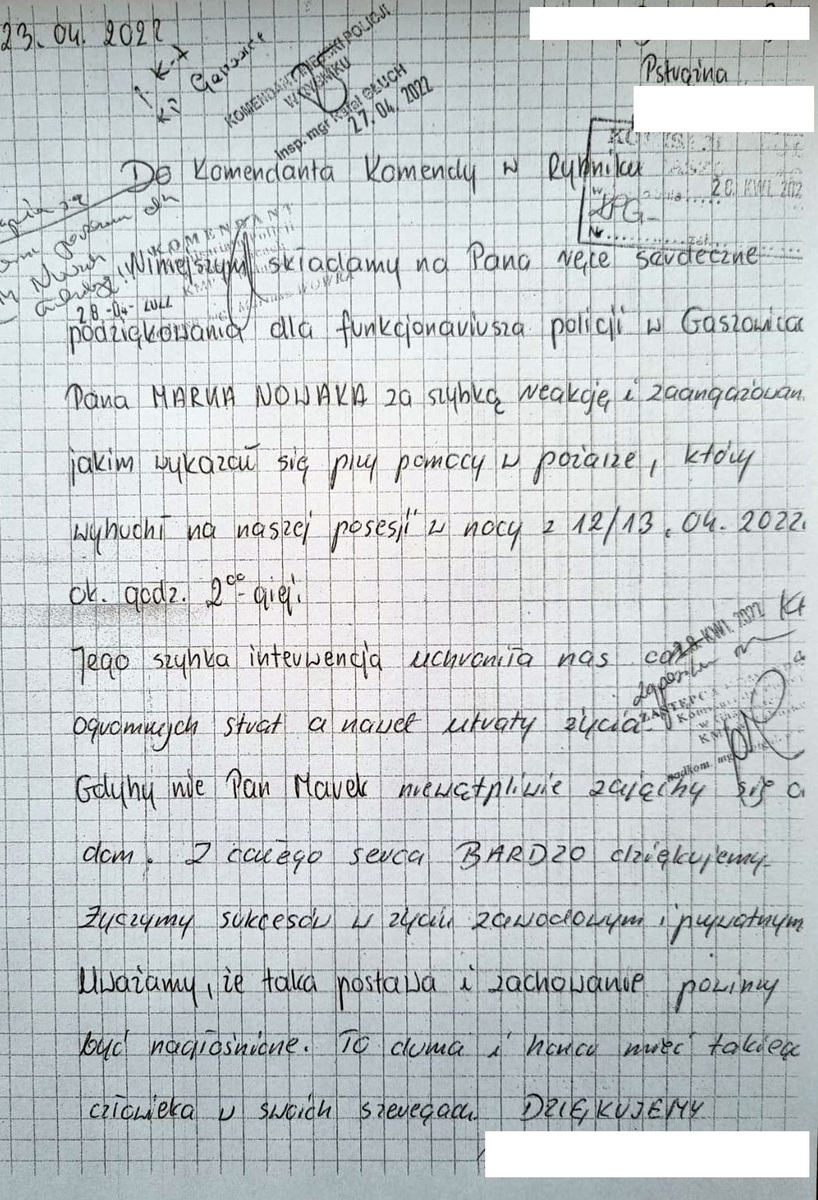 23.04.2022
Pstrążna
1. K-t
KP Gaszowice
KOMENDANT MIEJSKI POLICJI
W RYBNIKU
insp. mgr Rafał GŁUCH
27.04.2022
Do Komendanta Komendy w Rybniku
KOMENDANT
28-04-
Niniejszym składamy na Pana ręce serdeczne
podziękowania dla funkcjonariusza policji w Gaszowica
Pana MARKA NOWAKA za szybką reakcję i zaangażowan
jakim wykazał się przy pomocy w pożarze, który
wybuchł na naszej posesji w nocy z 12/13.04.2022
ok. godz. 2⁰⁰-giej.
Jego szybka interwencja uchroniła nas
28 KWI. 2022
ogromnych strat a nawet utraty życia.
ZASTĘPCA
Gdyby nie Pan Marek niewątpliwie zająłby się
nadkom. mgr
dom. Z całego serca BARDZO dziękujemy.
Życzymy sukcesów w życiu zawodowym i prywatnym
Uważamy, że taka postawa i zachowanie powinny
być nagłośnione. To duma i honor mieć takieg
człowieka w swoich szeregach. DZIĘKUJEMY